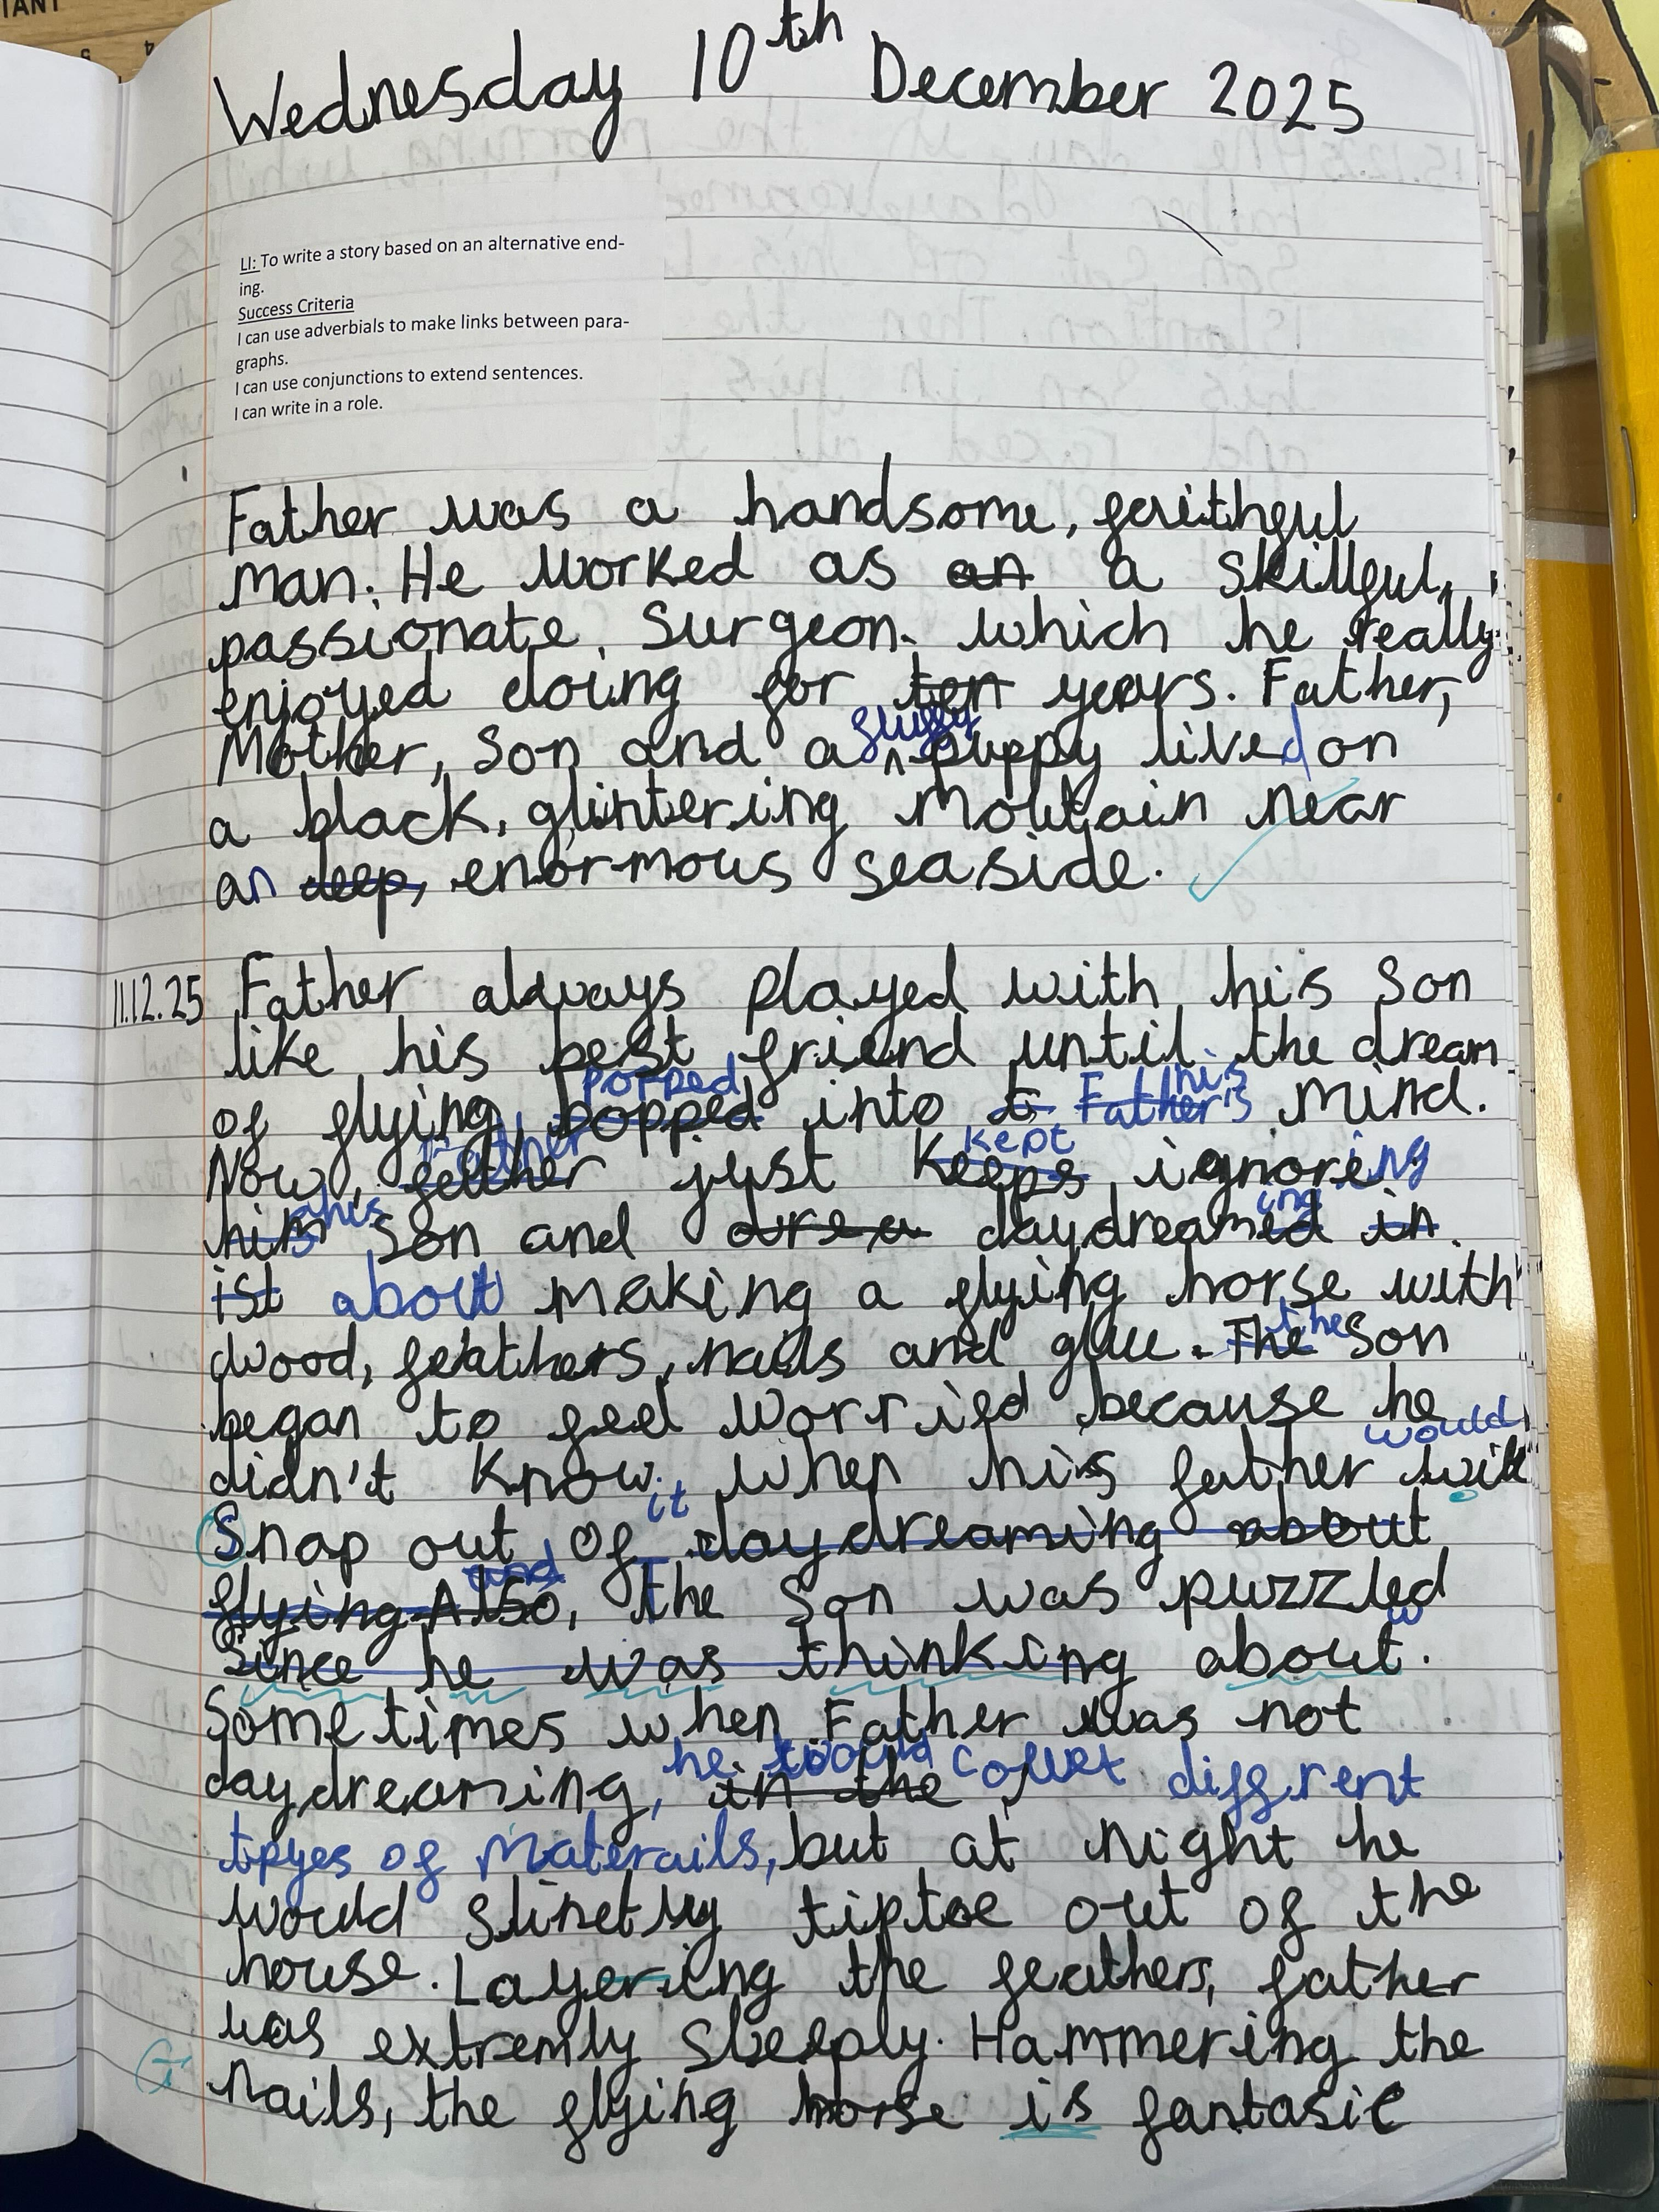 Wednesday 10th December 2025
LI: To write a story based on an alternative end-
ing.
Success Criteria
I can use adverbials to make links between para-
graphs.
I can use conjunctions to extend sentences.
I can write in a role.
Father was a handsome, faithful
man. He worked as an a skillful,
passionate, surgeon. which he really
enjoyed doing for ten years. Father,
Mother, Son and a fluffy puppy lived on
a black, glintering moutain near
an deep, enormous seaside.
11.12.25 Father always played with his Son
like his best friend until the dream
of flying popped bopped into t Father's his mind.
Now, Father father just kept keeps ignoreing
him his Son and drea daydreameding in
ist about making a flying horse with
wood, feathers, nails and glue. The the Son
began to feel worried because he
didn't know when his father would will
Snap out of it daydreaming about
flying Also and, the Son was puzzled
Since he was thinking about.
Sometimes when Father was not
daydreaming, in the he would collect different
tpyes of materails, but at night he
would slinetly tiptoe out of the
house. Layering the feathers, father
was extremly sleeply. Hammering the
nails, the flying horse is fantasic